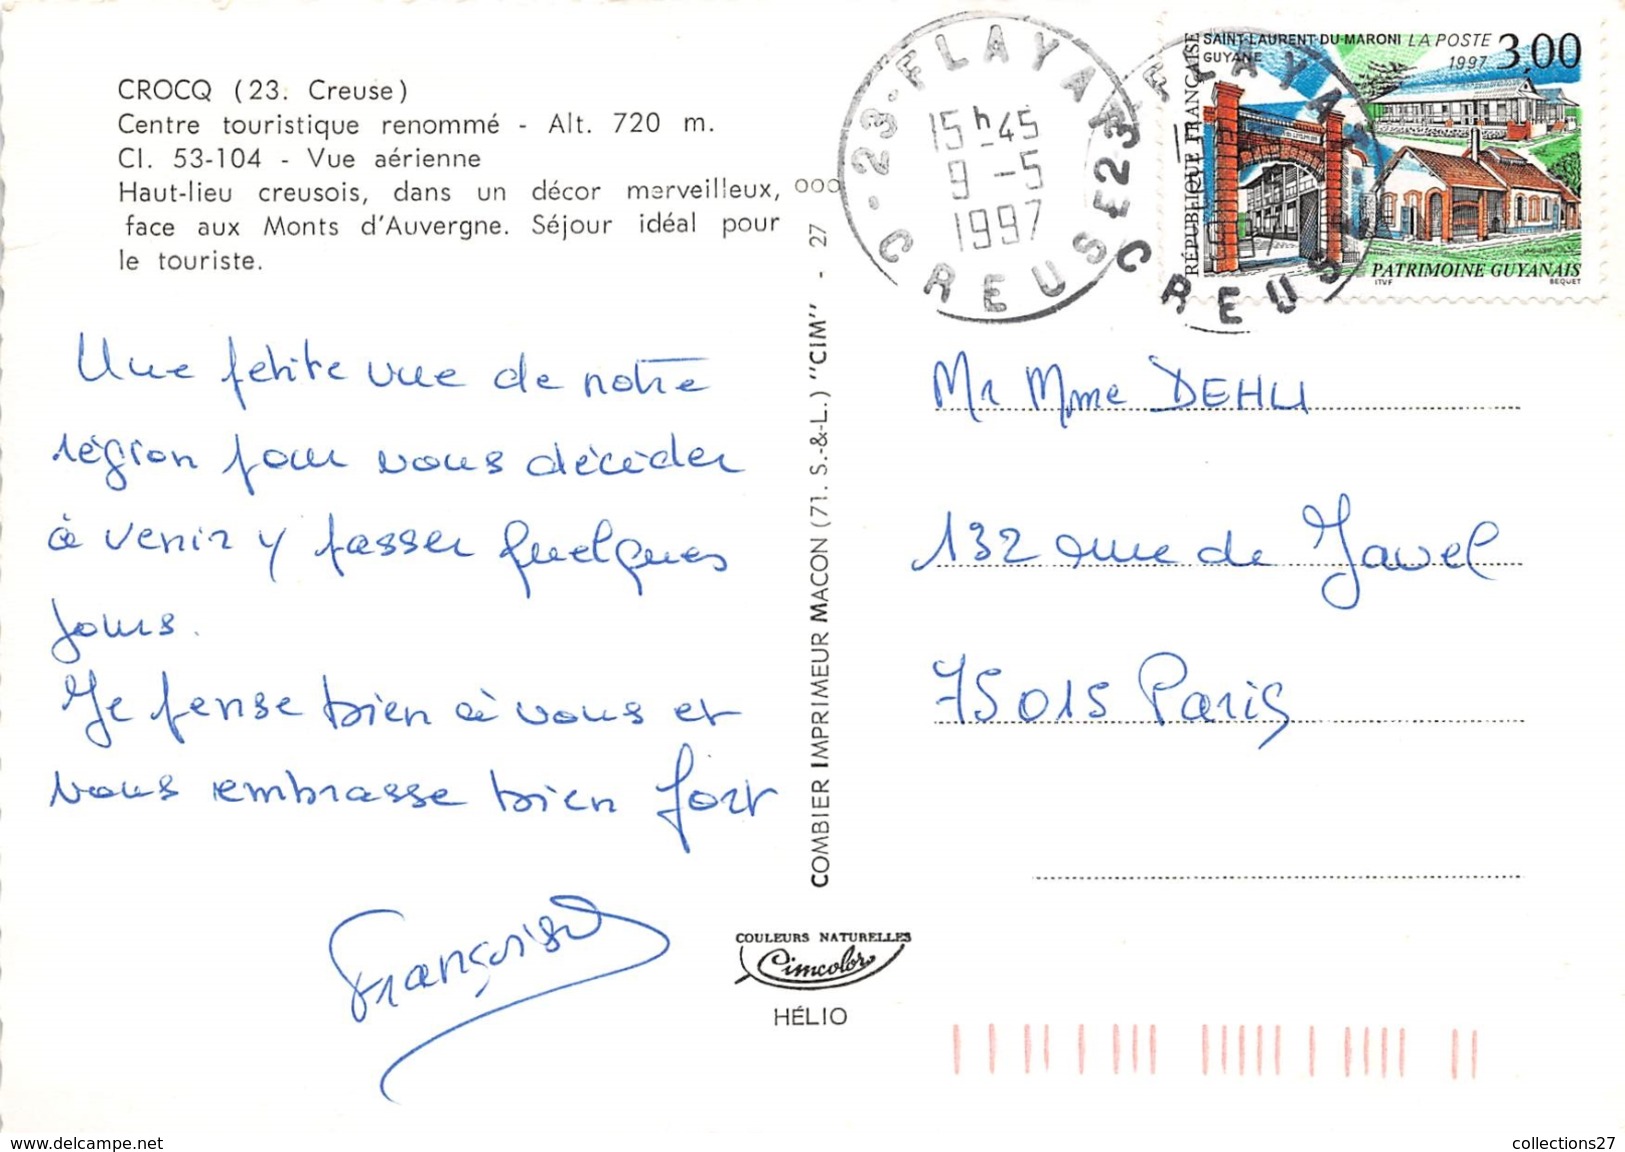 CROCQ (23. Creuse)
Centre touristique renommé - Alt. 720 m.
Cl. 53-104 - Vue aérienne
Haut-lieu creusois, dans un décor merveilleux,
face aux Monts d'Auvergne. Séjour idéal pour
le touriste.
Une petite vue de notre
région pour vous décider
à venir y passer quelques
jours.
Je pense bien à vous et
vous embrasse bien fort
Françoise
COMBIER IMPRIMEUR MACON (71. S.-&-L.) "CIM" - 27
COULEURS NATURELLES
Cimcolor
HÉLIO
23-FLAYAT
15h-45
9-5
1997
CREUSE
23-FLAYAT
CREUSE
RÉPUBLIQUE FRANÇAISE
SAINT-LAURENT-DU-MARONI LA POSTE 3,00
GUYANE 1997
PATRIMOINE GUYANAIS
ITVF BEQUET
Mr Mme DEHLI
132 rue de Javel
75015 Paris
www.delcampe.net
collections27